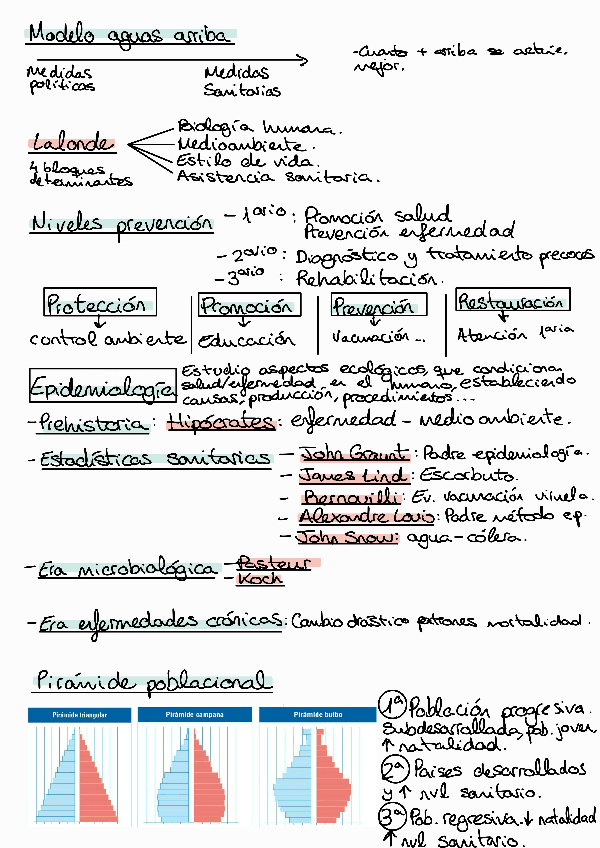 Modelo aguas arriba
Medidas políticas
Medidas Sanitarias
-Cuanto + arriba se actúe, mejor.
Lalonde
4 bloques determinantes
Biología humana.
Medioambiente.
Estilo de vida.
Asistencia sanitaria.
Niveles prevención
- 1ario : Promoción salud
Prevención enfermedad
- 2ario : Diagnóstico y tratamiento precoces
- 3ario : Rehabilitación.
Protección
control ambiente
Promoción
Educación
Prevención
Vacunación...
Restauración
Atención 1aria
Epidemiología
Estudio aspectos ecológicos, que condicionan
salud/enfermedad, en el humano, estableciendo
causas, producción, procedimientos...
- Prehistoria: Hipócrates: enfermedad - medio ambiente.
- Estadísticas sanitarias
- John Graunt: Padre epidemiología.
- James Lind: Escorbuto.
- Bernouilli: Ev. vacunación viruela.
- Alexandre Louis: Padre método ep.
- John Snow: agua-cólera.
- Era microbiológica
- Pasteur
- Koch
- Era enfermedades crónicas: Cambio drástico patrones mortalidad.
Pirámide poblacional
Pirámide triangular
Pirámide campana
Pirámide bulbo
1ª Población progresiva.
Subdesarrollada, pob. joven
↑ natalidad.
2ª Paises desarrollados
y ↑ nvl sanitario.
3ª Pob. regresiva. ↓ natalidad
↑ nvl sanitario.